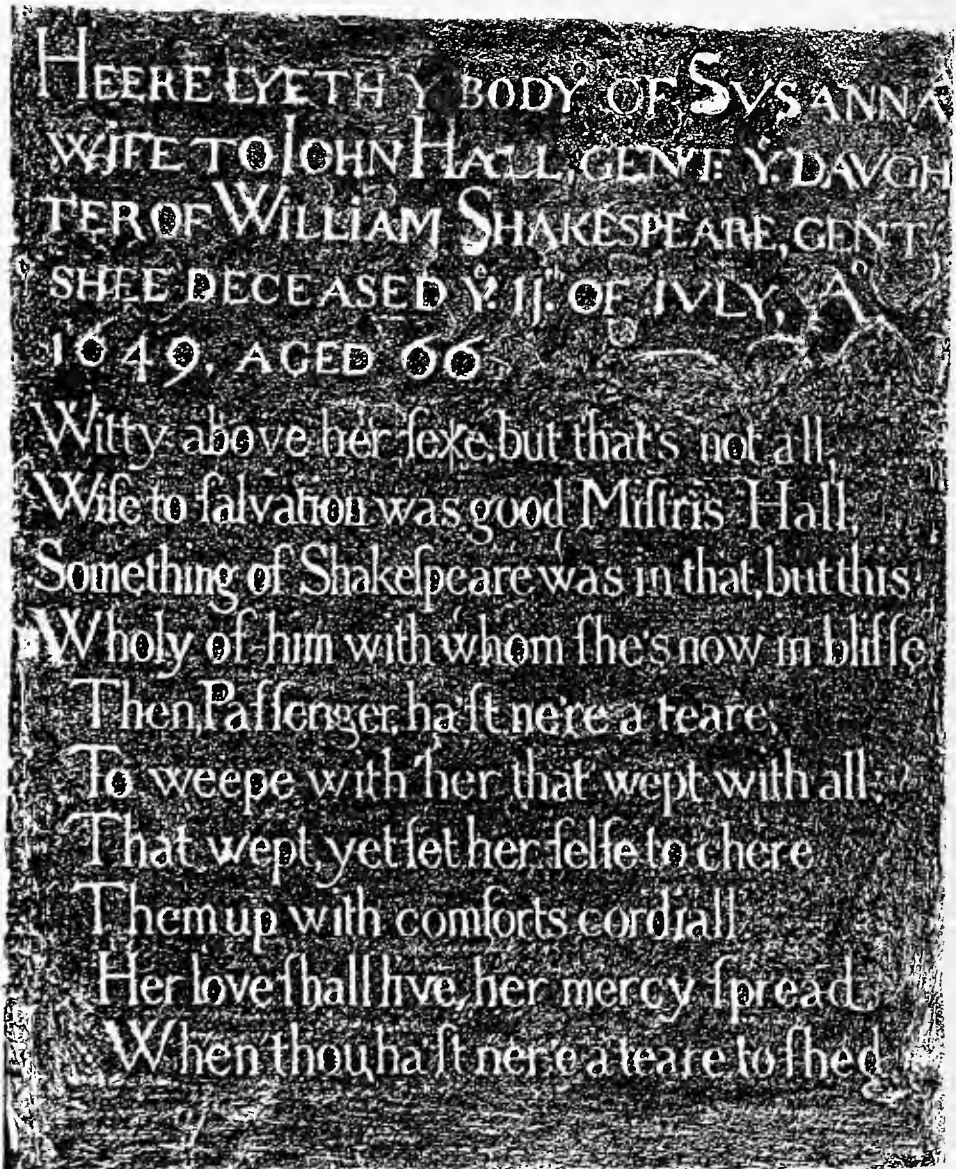 HEERE LYETH Yᵉ BODY OF SVSANNA
WIFE TO IOHN HALL, GENT: Yᵉ DAVGH
TER OF WILLIAM SHAKESPEARE, GENT:
SHEE DECEASED Yᵉ IJᵗʰ OF IVLY, Aᵒ
1649, AGED 66
Witty above her ſexe, but that's not all,
Wiſe to ſalvation was good Miſtris Hall,
Something of Shakeſpeare was in that, but this
Wholy of him with whom ſhe's now in bliſſe.
Then, Paſſenger, ha'ſt ne're a teare,
To weepe with her that wept with all;
That wept, yet ſet her ſelfe to chere
Them up with comforts cordiall.
Her love ſhall live, her mercy ſpread,
When thou ha'ſt ner'e a teare to ſhed.